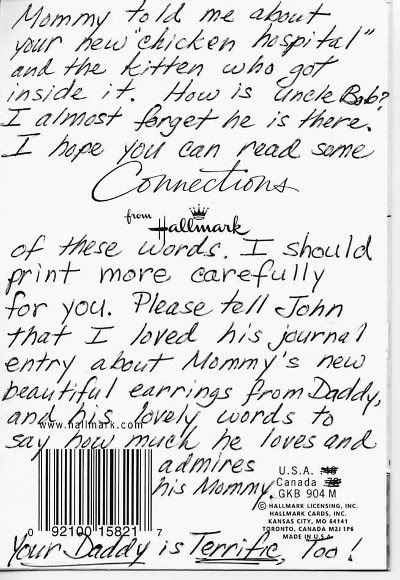 Mommy told me about
your new "chicken hospital"
and the kitten who got
inside it. How is Uncle Bob?
I almost forget he is there.
I hope you can read some
Connections
from Hallmark
of these words. I should
print more carefully
for you. Please tell John
that I loved his journal
entry about Mommy's new
beautiful earrings from Daddy,
and his lovely words to
www.hallmark.com
say how much he loves and
admires
his Mommy.
U.S.A.
Canada
GKB 904 M
© HALLMARK LICENSING, INC.
HALLMARK CARDS, INC.
KANSAS CITY, MO 64141
TORONTO, CANADA M2J 1P6
MADE IN U.S.A.
0 92100 15821 7
4
Your Daddy is Terrific, Too!